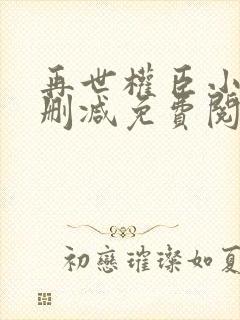 再世權臣小
刪減免費閱
初戀璀璨如夏